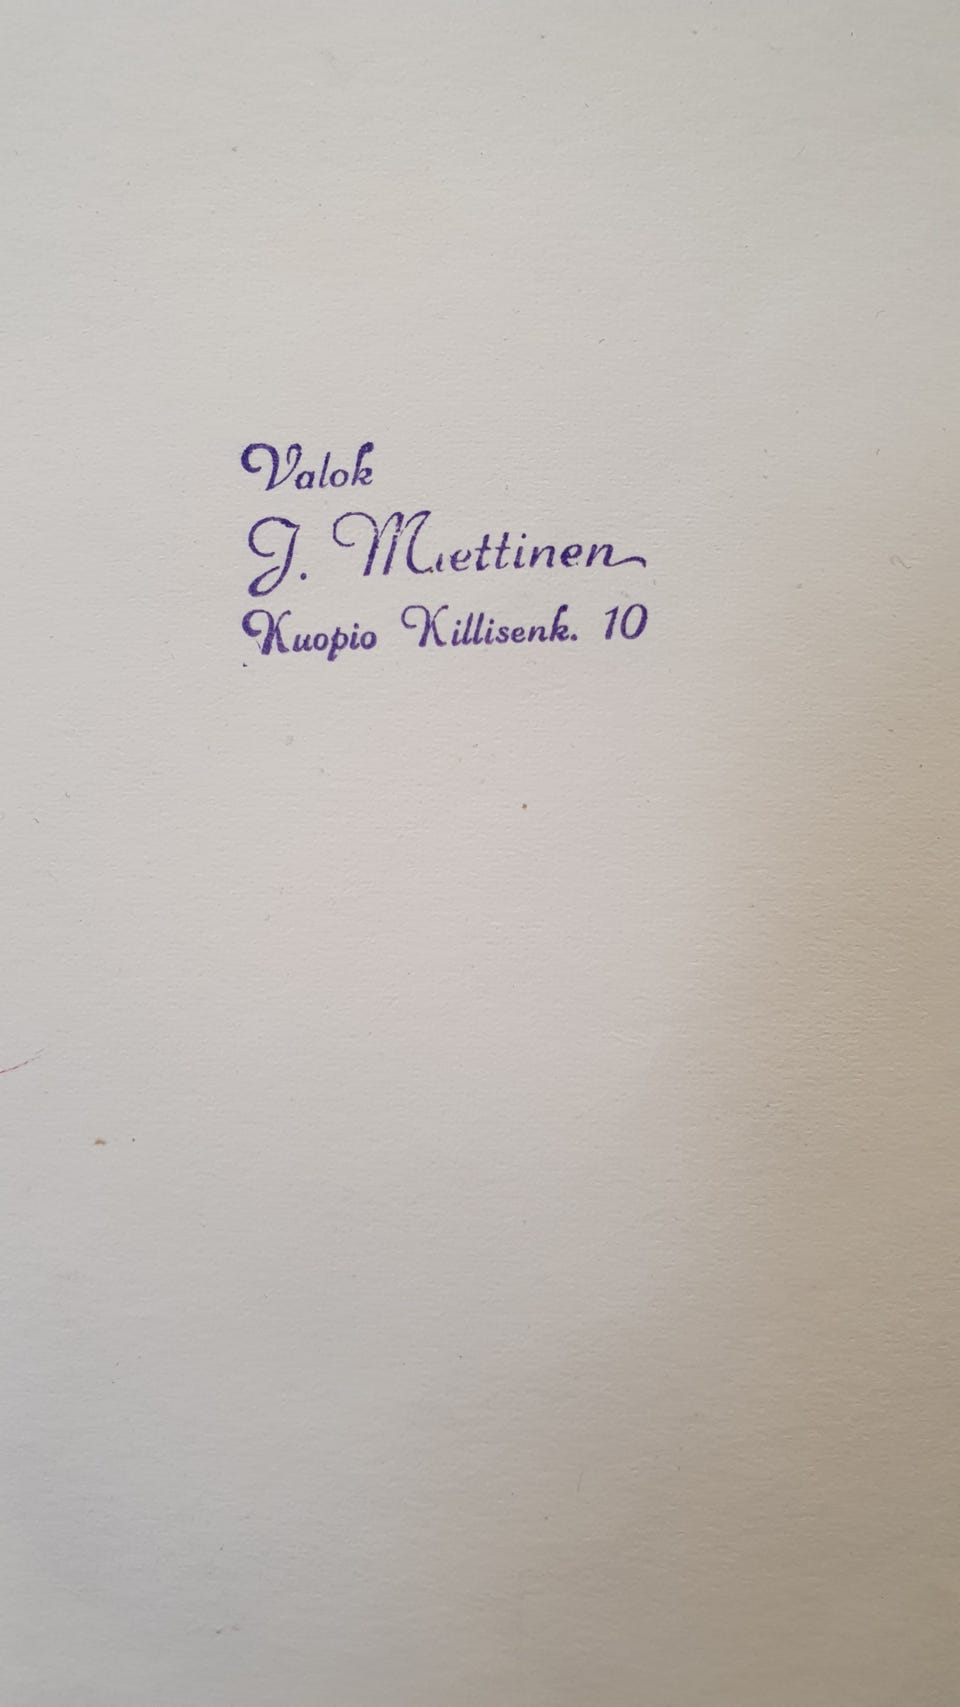 Valok
J. Miettinen
Kuopio Killisenk. 10